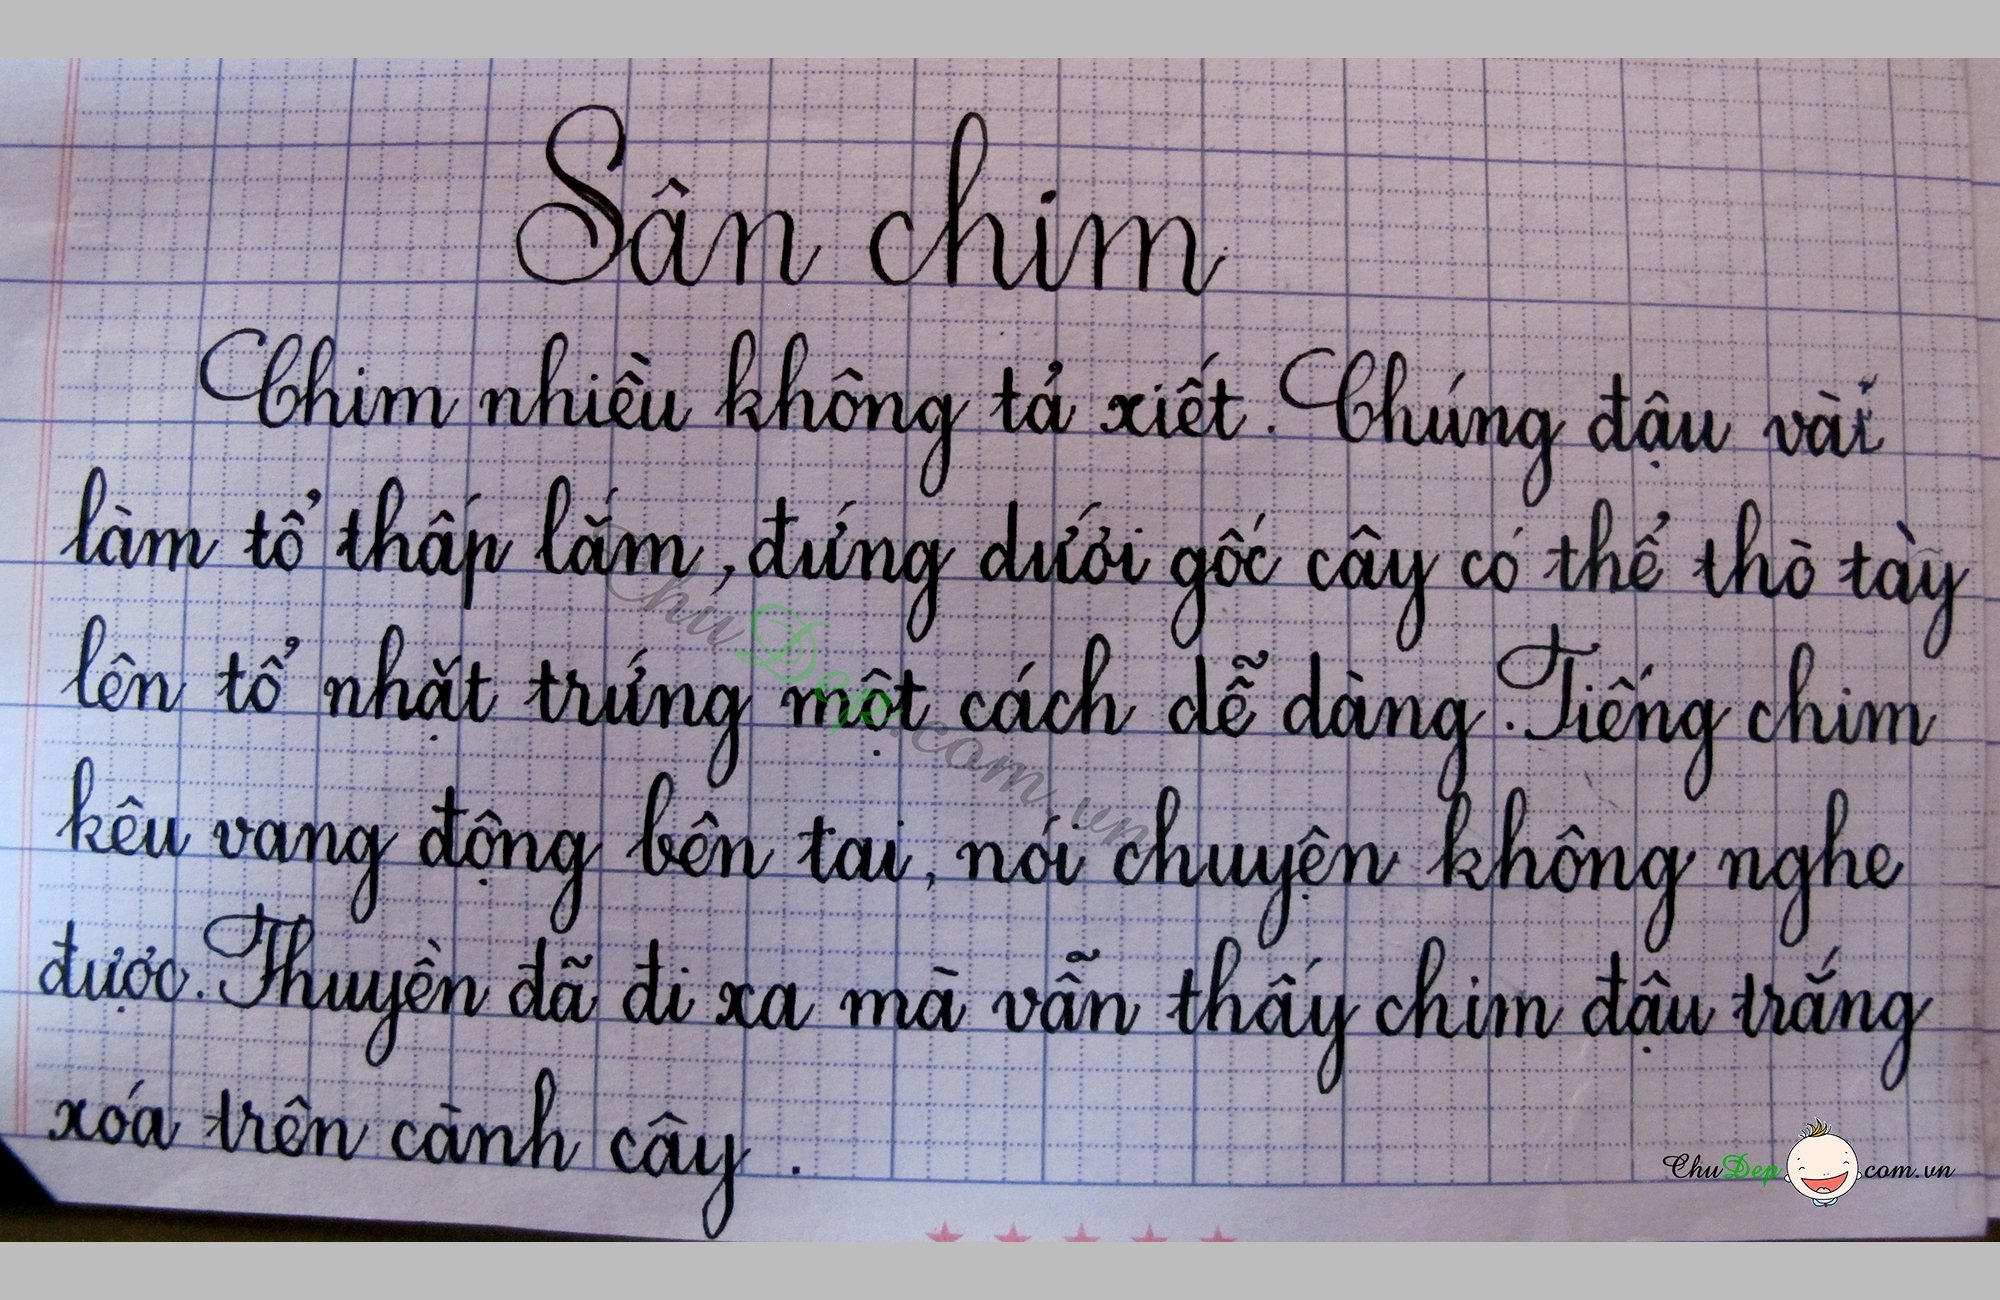 Sân chim
Chim nhiều không tả xiết. Chúng đậu vài
làm tổ thấp lắm, đứng dưới gốc cây có thể thò tày
lên tổ nhặt trứng một cách dễ dàng. Tiếng chim
kêu vang động bên tai, nói chuyện không nghe
được. Thuyền đã đi xa mà vẫn thấy chim đậu trắng
xóa trên cành cây .
ChuDep.com.vn
ChuDep.com.vn